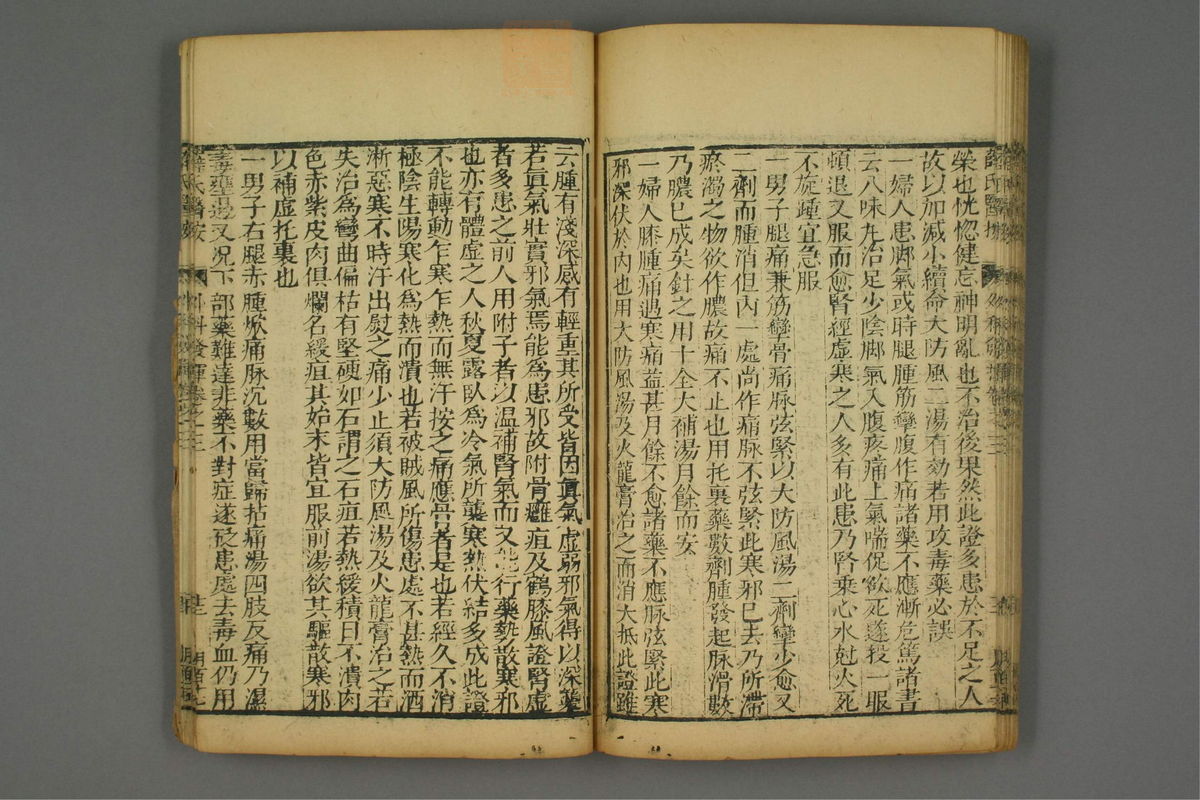 榮也恍惚健忘神明亂也不治後果然此證多患於不足之人
故以加減小續命大防風二湯有効若用攻毒藥必誤
一婦人患脚氣或時腿腫筋攣腹作痛諸藥不應漸危篤諸書
云八味丸治足少陰脚氣入腹疼痛上氣喘促欲死遂投一服
頓退又服而愈腎經虛寒之人多有此患乃腎乘心水尅火死
不旋踵宜急服
一男子腿痛兼筋攣骨痛脉弦緊以大防風湯二劑攣少愈又
二劑而腫消但內一處尚作痛脉不弦緊此寒邪已去乃所滯
瘀濁之物欲作膿故痛不止也用托裏藥數劑腫發起脉滑數
乃膿已成矣針之用十全大補湯月餘而安
一婦人膝腫痛遇寒痛益甚月餘不愈諸藥不應脉弦緊此寒
邪深伏於內也用大防風湯及火龍膏治之而消大抵此證雖
云腫有淺深感有輕重其所受皆因眞氣虛弱邪氣得以深襲
若眞氣壯實邪氣焉能爲患邪故附骨癰疽及鶴膝風證腎虛
者多患之前人用附子者以溫補腎氣而又能行藥勢散寒邪
也亦有體虛之人秋夏露臥爲冷氣所襲寒熱伏結多成此證
不能轉動乍寒乍熱而無汗按之痛應骨者是也若經久不消
極陰生陽寒化爲熱而潰也若被賊風所傷患處不甚熱而洒
淅惡寒不時汗出熨之痛少止須大防風湯及火龍膏治之若
失治爲彎曲偏枯有堅硬如石謂之石疽若熱緩積日不潰肉
色赤紫皮肉俱爛名緩疽其始末皆宜服前湯欲其驅散寒邪
以補虛托裏也
一男子右腿赤腫焮痛脉沉數用當歸拈痛湯四肢反痛乃濕
毒壅遏又况下部藥難達非藥不對症遂砭患處去毒血仍用
薛氏醫按
外科發揮卷之三